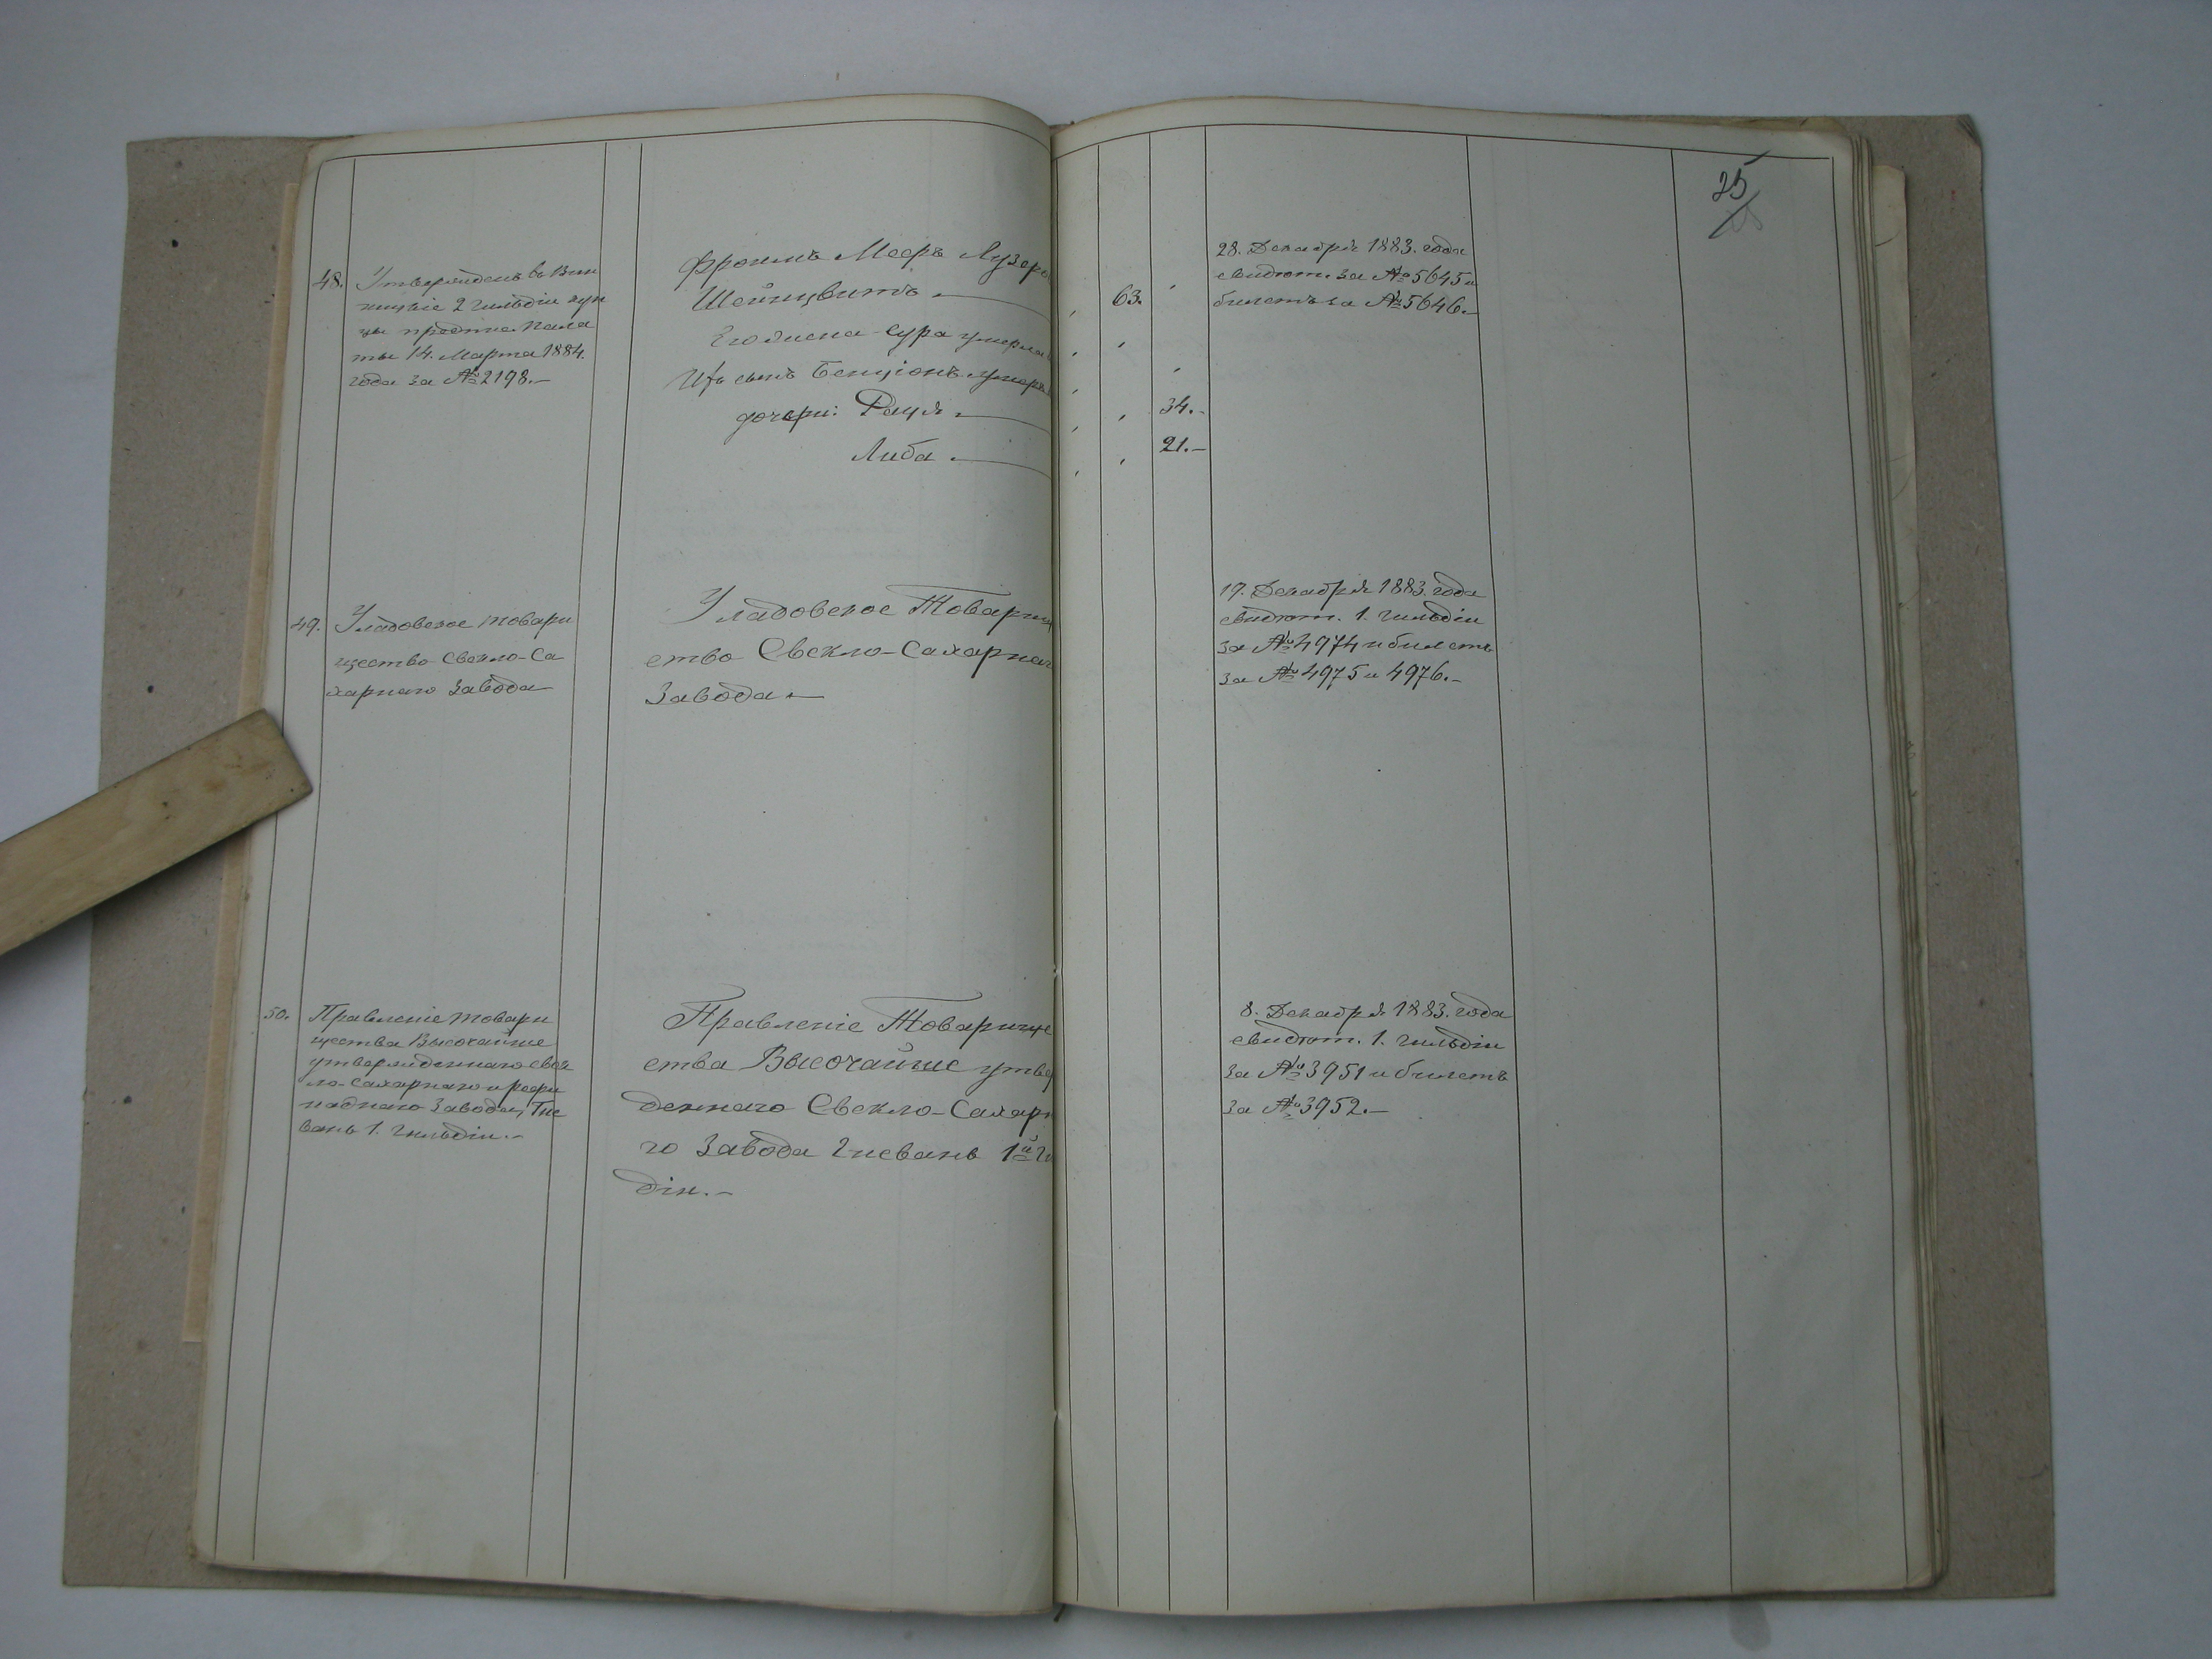 25
48.
Утвержденъ въ Вин
ницкіе 2 гильдіи куп
цы предпис. Пала
ты 14. Марта 1884.
года за № 2198.—
Фроимъ Мееръ Лузеро
Шейнцвитъ.—
Его жена Сура умерла
Ихъ сынъ Бенціонъ умеръ
дочери: Рация.—
Либа.—
63.
34.—
21.—
28. Декабря 1883. года
свидѣт. за № 5645 и
билетъ за № 5646.—
49.
Уладовское товари
щество Свекло-Са
харнаго Завода
Уладовское Товарищ
ество Свекло-Сахарнаг
Завода.—
19. Декабря 1883. года
свидѣт. 1. гильдіи
за № 4974 и билетъ
за № 4975 и 4976.—
50.
Правленіе товари
щества Высочайше
утвержденнаго свек
ло-сахарнаго и рафи
наднаго завода, Гне
вань 1. гильдіи.—
Правленіе Товарище
ства Высочайше утвер
жденнаго Свекло-Сахарн
го Завода Гневань 1й Ги
діи.—
8. Декабря 1883. года
свидѣт. 1. гильдіи
за № 3951 и билетъ
за № 3952.—